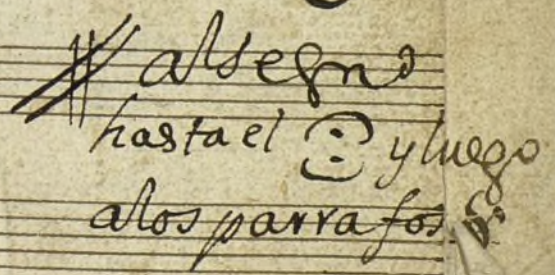 al segno
hasta el y luego
a los parrafos